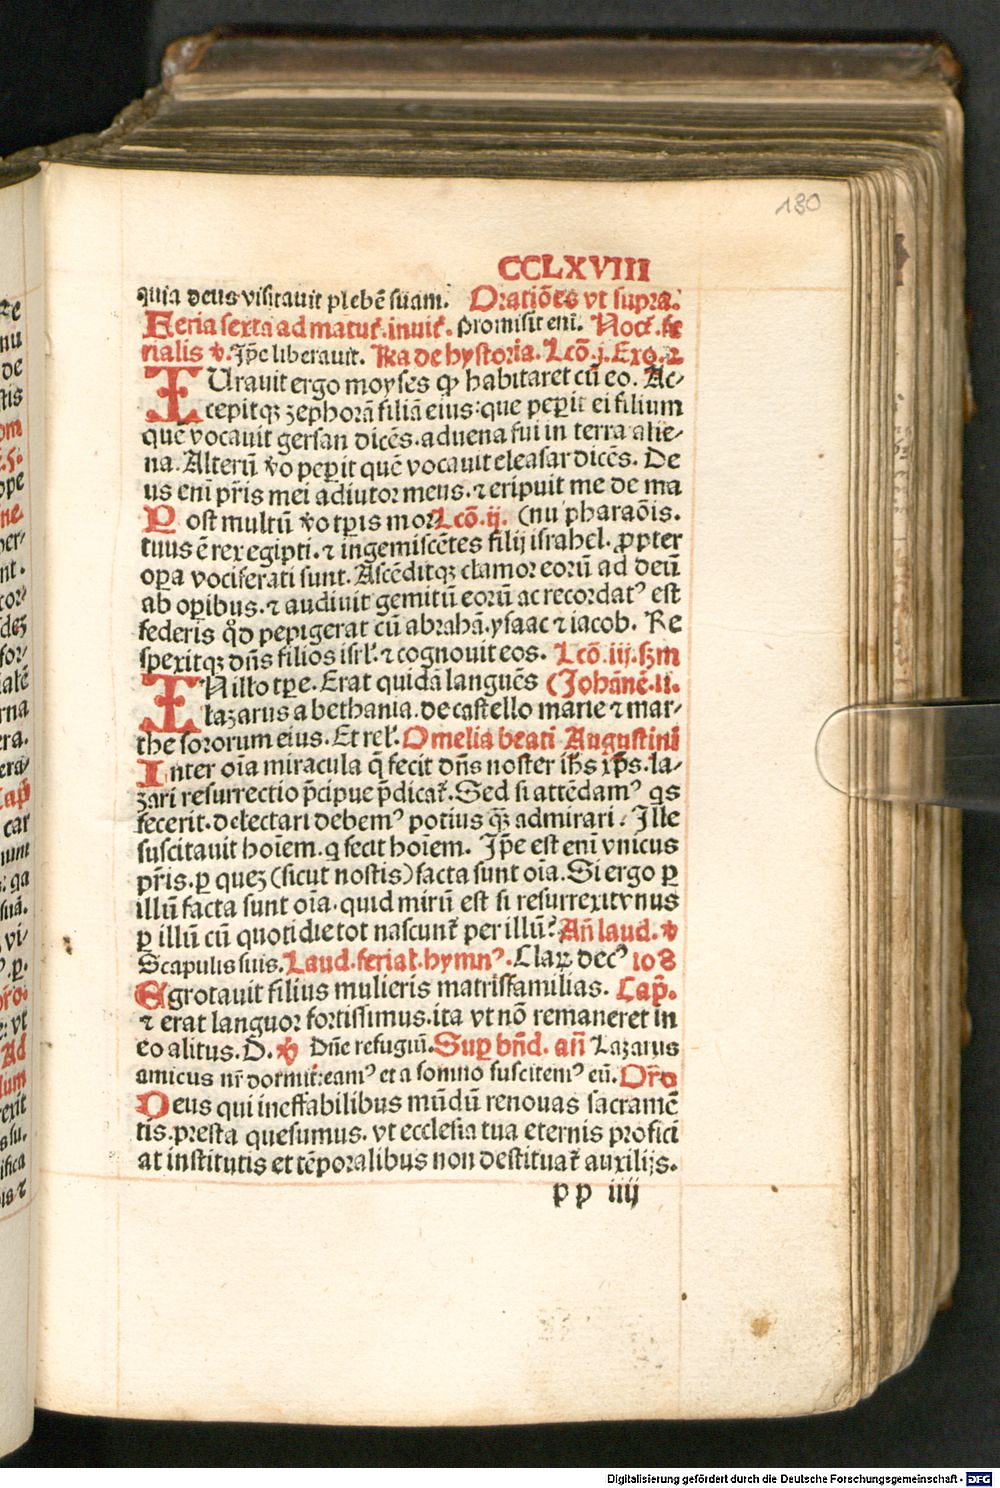 130
CCLXVIII
quia deus visitauit plebē suam. Oratiōes vt supra.
Feria sexta ad matut᷑. inuit᷑. Promisit eni. Noct᷑. fe
rialis ꝟ. Ip̄e liberauit. Ra de hystoria. Lcō. j. Exo. 2
IUrauit ergo moyses ꝙ habitaret cū eo. Ac⸗
cepitqꝫ zephorā filiā eius: que peꝑit ei filium
quē vocauit gersan dicēs. aduena fui in terra alie⸗
na. Alterū ꝟo peꝑit quē vocauit eleasar dicēs. De
us eni pr̄is mei adiutor meus. ⁊ eripuit me de ma
Post multū ꝟo tꝑis mor Lcō. ij. (nu pharaōis.
tuus ē rex egipti. ⁊ ingemiscētes filij israhel. ꝓpter
oꝑa vociferati sunt. Ascēditqꝫ clamor eorū ad deū
ab oꝑibus. ⁊ audiuit gemitū eorū ac recordatꝰ est
federis qd̄ pepigerat cū abrahā. ysaac ⁊ iacob. Re
spexitqꝫ dn̄s filios isrl᷑. ⁊ cognouit eos. Lcō. iij. sꝫm
IN illo tꝑe. Erat quidā languēs (Johānē. 11.
lazarus a bethania. de castello marie ⁊ mar⸗
the sororum eius. Et rel᷑. Omelia beati Augustini
Inter oīa miracula q̄ fecit dn̄s noster ih̄s xp̄s. la⸗
zari resurrectio p̄cipue p̄dicat᷑. Sed si attēdamꝰ qs
fecerit. delectari debemꝰ potius qꝫ admirari. Ille
suscitauit hoīem. q fecit hoīem. Ip̄e est eni vnicus
pr̄is. ꝑ quez (sicut nostis) facta sunt oīa. Si ergo ꝑ
illū facta sunt oīa. quid mirū est si resurrexit vnus
ꝑ illū cū quotidie tot nascunt᷑ per illū? An̄ laud. ꝟ
Scapulis suis. Laud. ferial. hymnꝰ. Claꝝ decꝰ 108
Egrotauit filius mulieris matrisfamilias. Cap̄.
⁊ erat languor fortissimus. ita vt nō remaneret in
eo alitus. D. ꝟ Dn̄e refugiū. Suꝑ bn̄d. an̄ Lazarus
amicus nr̄ dormit: eamꝰ et a somno suscitemꝰ eū. Or̄o
Deus qui ineffabilibus mūdū renouas sacramē
tis. presta quesumus. vt ecclesia tua eternis profici
at institutis et tēporalibus non destituat᷑ auxilijs.
pp iiij
Digitalisierung gefördert durch die Deutsche Forschungsgemeinschaft - DFG